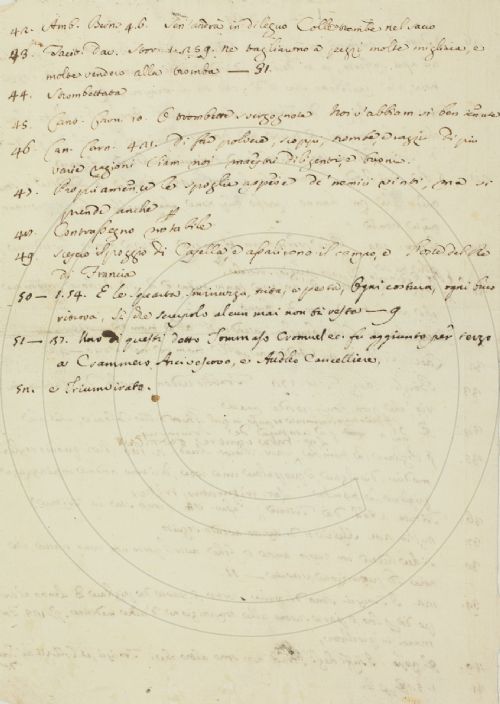 42. Amb. Bern. 4.6. Sen'andrà in dileguo Colle trombe nel sacco
43. Tacit. Dav. Stor. 1. 259. Ne tagliarono a pezzi molte migliaia, e
molte vendero alla tromba — 31.
44. Strombettata
45. Cant. Carn. 10. O trombetti svergognate Noi v'abbiam si ben
46 Can. Carn. 421. Di far polvere, scoppi, trombe, e razzi Di più
varie ragioni Siam noi maestri diligenti, e buoni.
47. Propriamente le spoglie appese de' nemici vinti, ma si
prende anche pp
48 Contrassegno notabile
49 Sceso il poggio di Casella, e apparirono il campo, e l'oste del Re
di Francia
50 — 1.54. E le squadra, sminuzza, trita, e pesta, Ogni costura, ogni buco
ritrova, Sì che scrupolo alcun mai non ti resta — 9
51 — 57. Uno di questi detto Tommaso Cromuel ec. fu aggiunto per terzo
a Crammero Arcivescovo, e Audleo Cancelliere,
52. e Triumvirato.